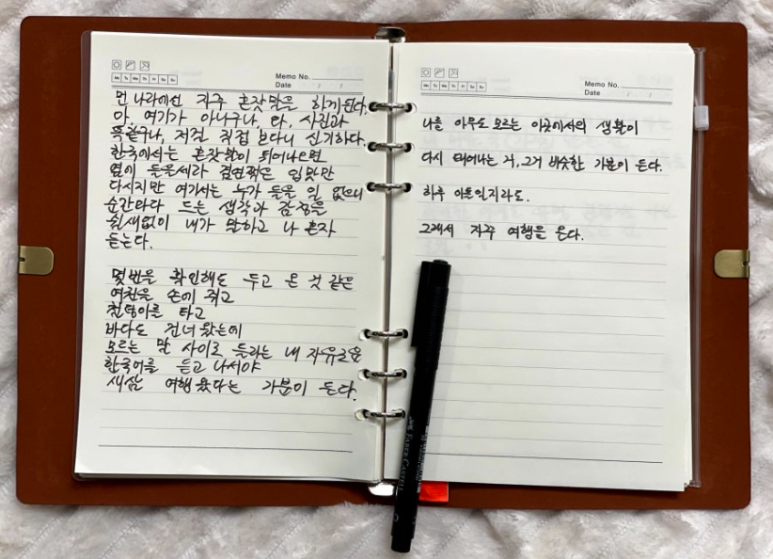 Memo No.
Date / /
먼 나라에선 자주 혼잣말을 하게된다.
아, 여기가 아니구나, 다, 사진과
똑같구나, 저걸 직접 보다니 신기하다.
한국에서는 혼잣말이 튀어나오면
옆이 들을세라 겸연쩍은 입맛만
다시지만 여기서는 누가 들을 일 없으니
순간마다 드는 생각과 감정을
쉴새없이 내가 말하고 나 혼자
듣는다.
몇번을 확인해도 두고 온 것 같은
여권을 손에 쥐고
비행기를 타고
바다도 건너왔는데
모르는 말 사이로 들리는 내 자유로운
한국어를 듣고 나서야
새삼 여행 왔다는 기분이 든다.
Memo No.
Date / /
나를 아무도 모르는 이곳에서의 생활이
다시 태어나는 거, 그거 비슷한 기분이 든다.
하루 이틀일지라도.
그래서 자꾸 여행을 온다.
FABER-CASTELL